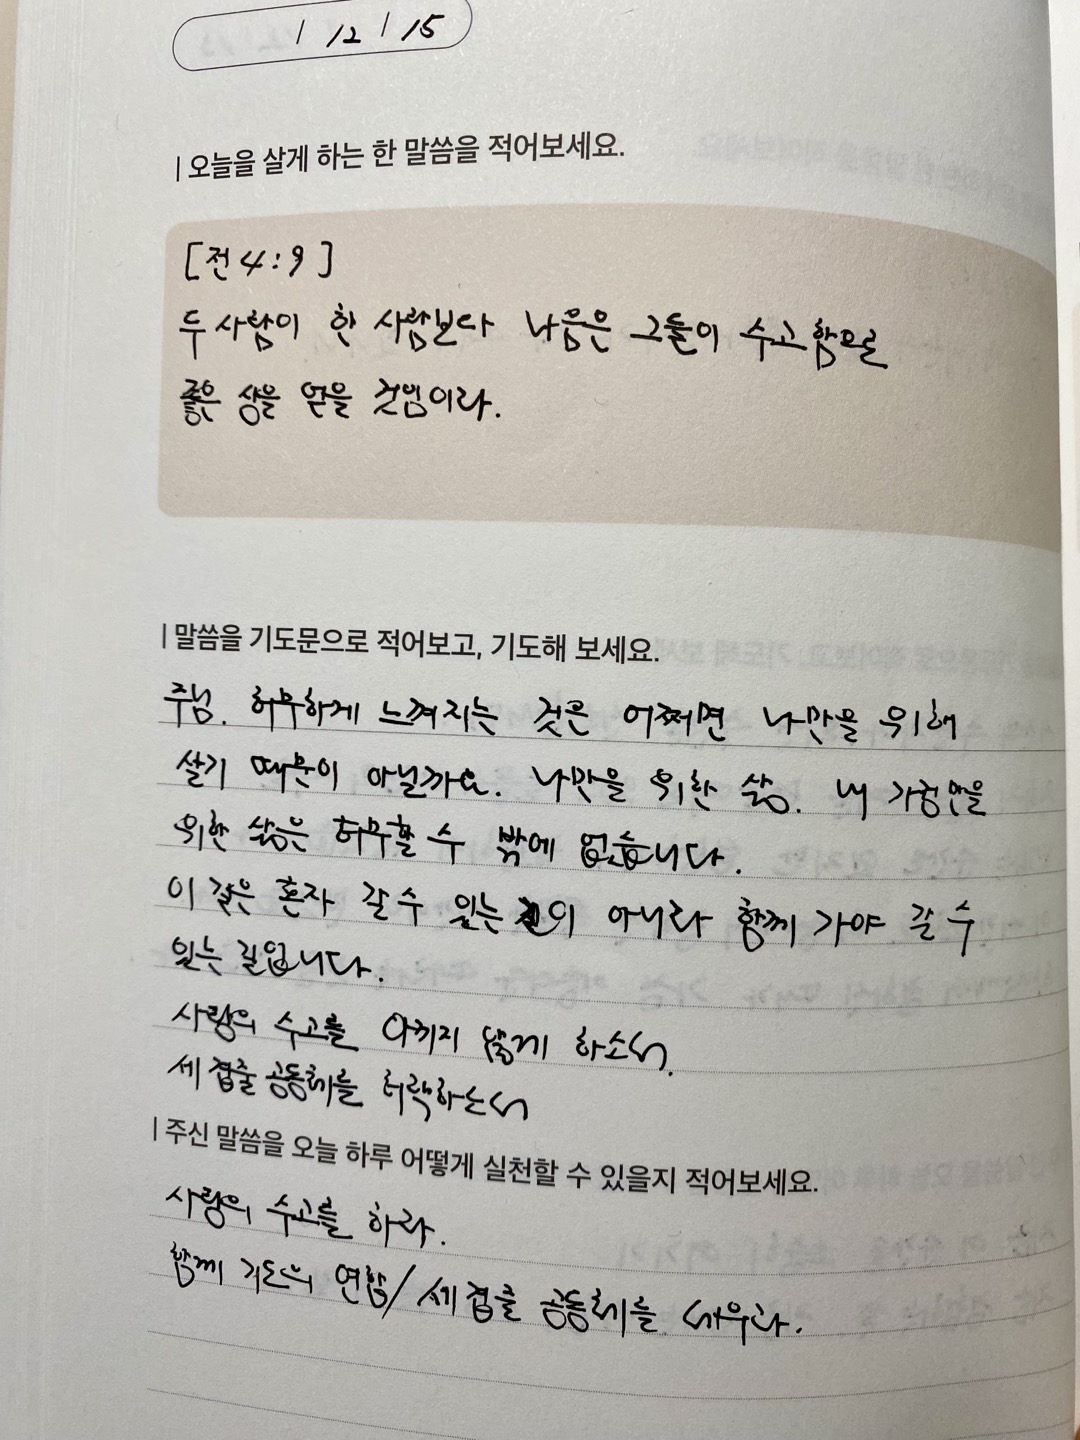 | 12 | 15
| 오늘을 살게 하는 한 말씀을 적어보세요.
[전 4:9]
두 사람이 한 사람보다 나음은 그들이 수고함으로
좋은 상을 얻을 것임이라.
| 말씀을 기도문으로 적어보고, 기도해 보세요.
주님. 허무하게 느껴지는 것은 어쩌면 나만을 위해
살기 때문이 아닐까요. 나만을 위한 삶. 내 가정만을
위한 삶은 허무할 수 밖에 없습니다.
이 길은 혼자 갈 수 있는 길이 아니라 함께 가야 갈 수
있는 길입니다.
사랑의 수고를 아끼지 않게 하소서.
세 겹줄 공동체를 허락하소서
| 주신 말씀을 오늘 하루 어떻게 실천할 수 있을지 적어보세요.
사랑의 수고를 하라.
함께 기도의 연합/ 세 겹줄 공동체를 세우라.